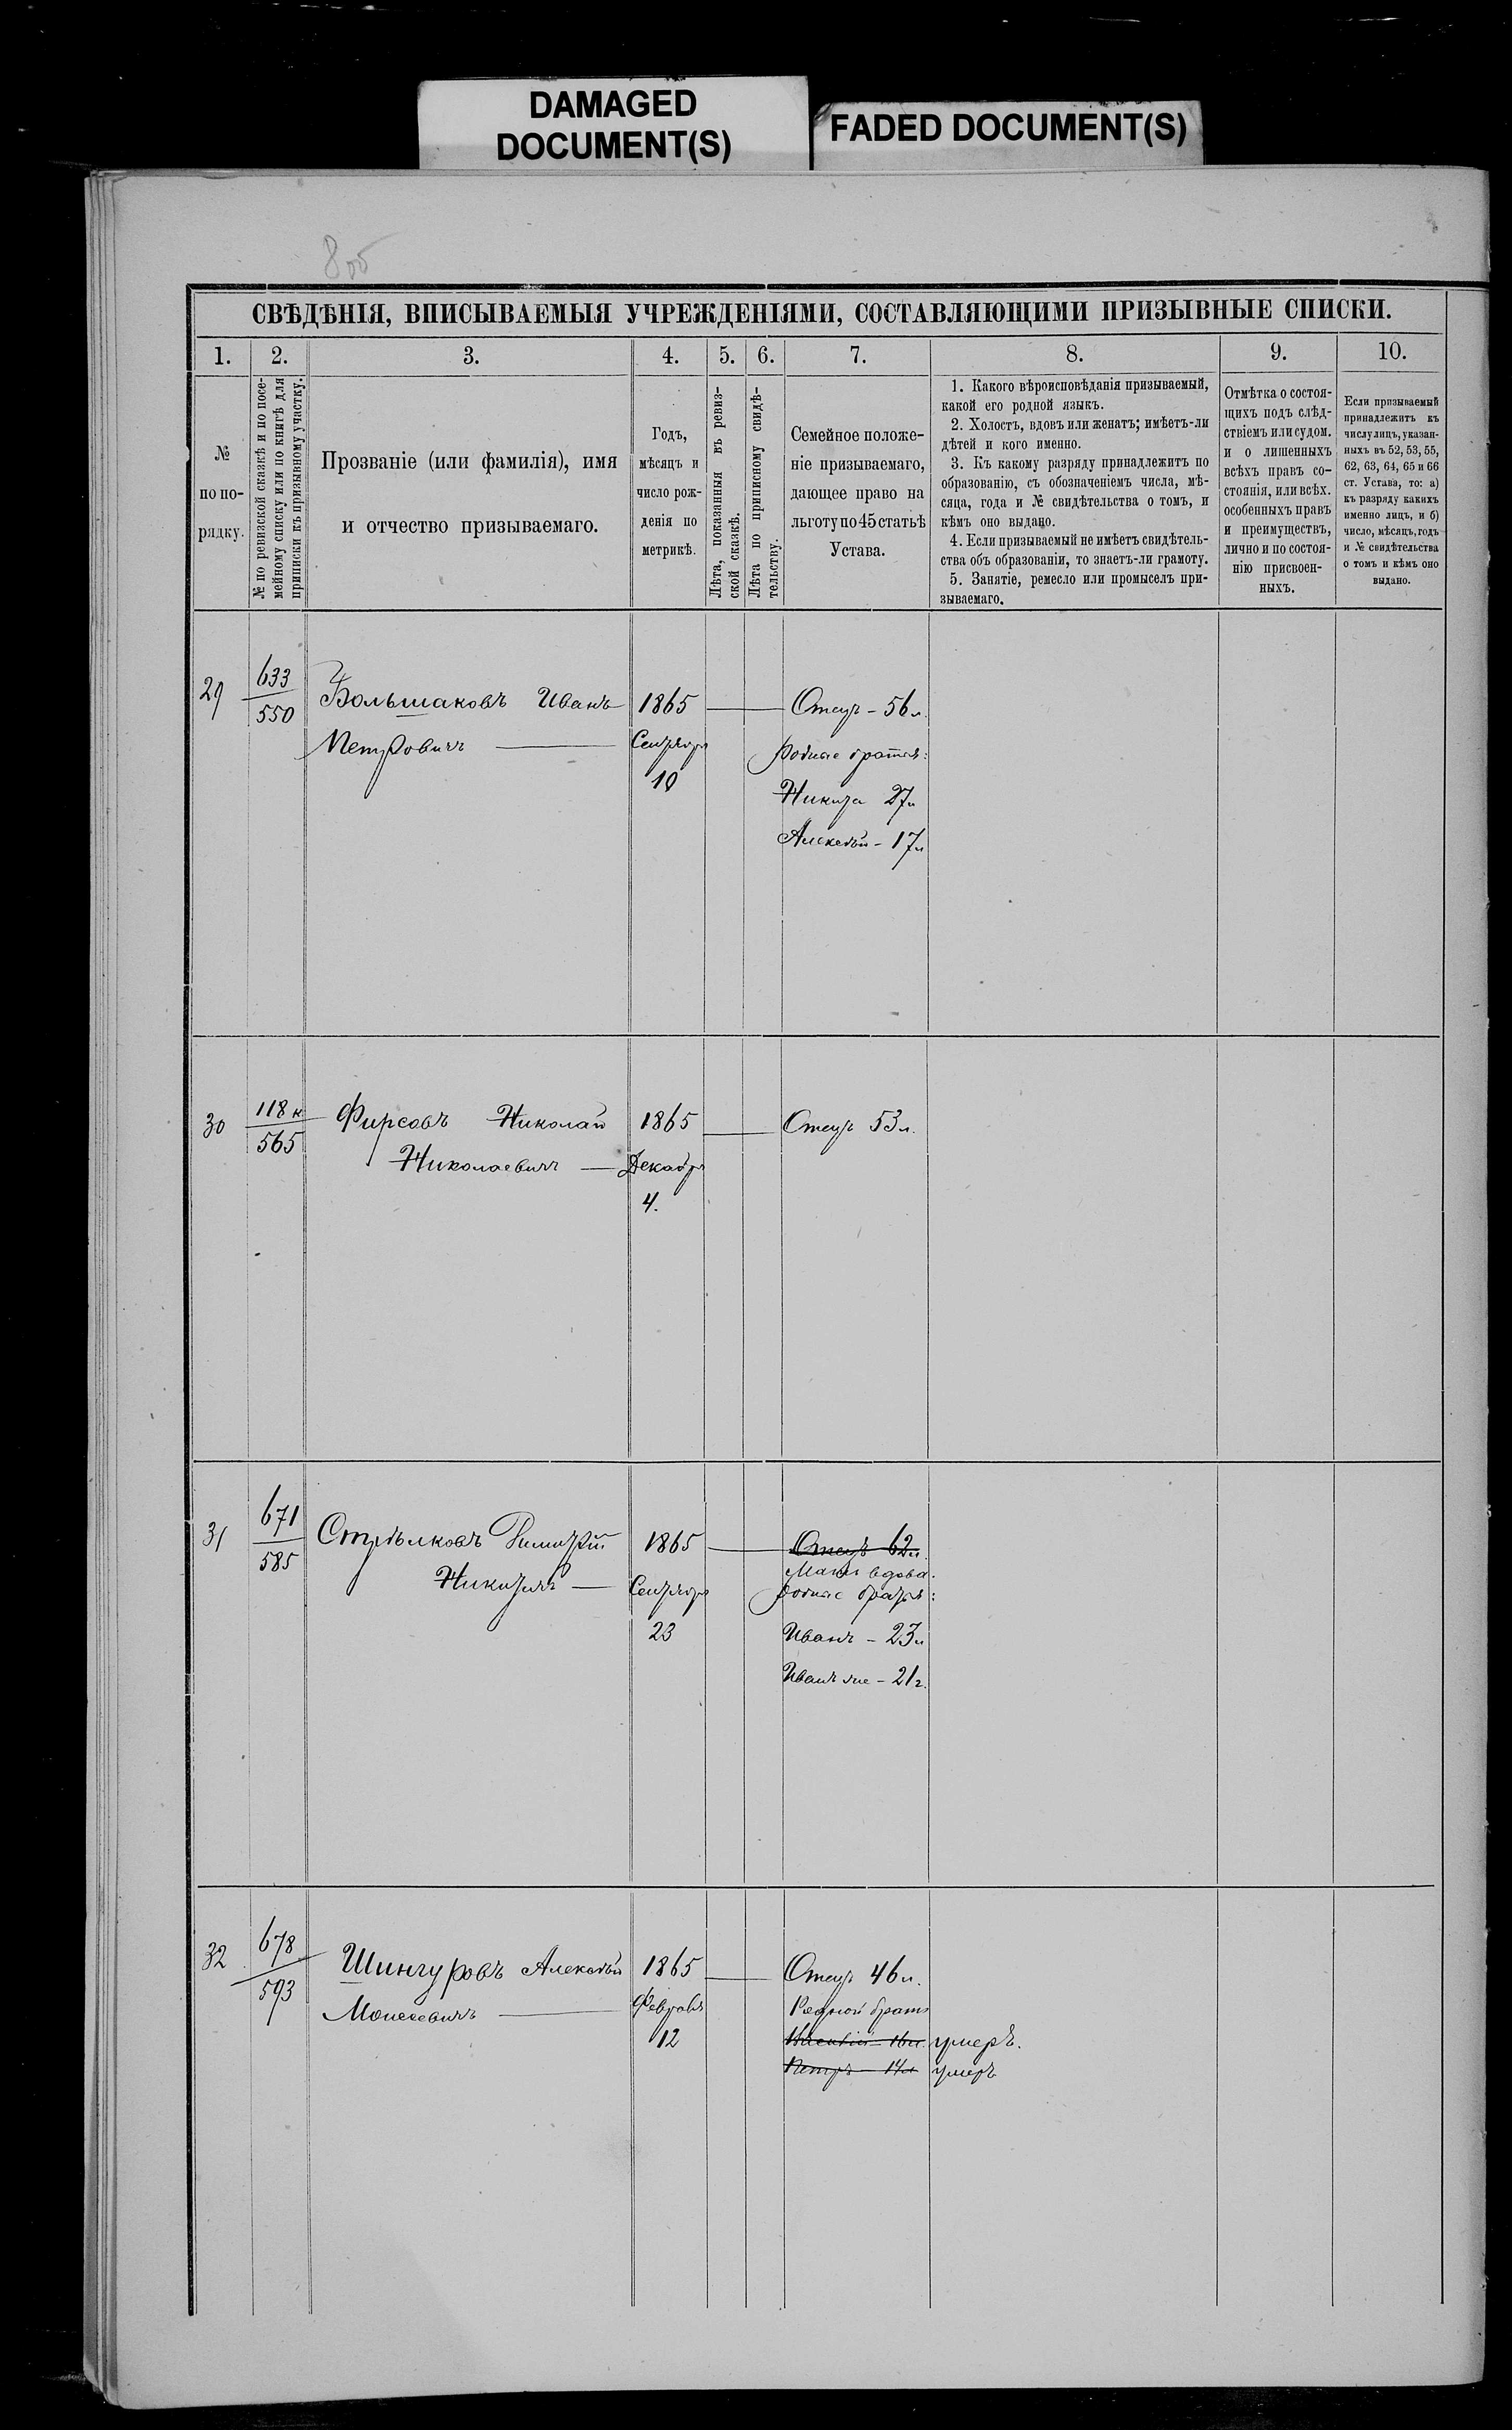 DAMAGED
DOCUMENT(S)
FADED DOCUMENT(S)
8об
СВѢДѢНІЯ, ВПИСЫВАЕМЫЯ УЧРЕЖДЕНІЯМИ, СОСТАВЛЯЮЩИМИ ПРИЗЫВНЫЕ СПИСКИ.
1. 2. 3. 4. 5. 6. 7. 8. 9. 10.
№
по по-
рядку.
№ по ревизской сказкѣ и по посе-
мейному списку или по книгѣ для
приписки къ призывному участку.
Прозваніе (или фамилія), имя
и отчество призываемаго.
Годъ,
мѣсяцъ и
число рож-
денія по
метрикѣ.
Лѣта, показанныя въ ревиз-
ской сказкѣ.
Лѣта по приписному свидѣ-
тельству.
Семейное положе-
ніе призываемаго,
дающее право на
льготу по 45 статьѣ
Устава.
1. Какого вѣроисповѣданія призываемый,
какой его родной языкъ.
2. Холостъ, вдовъ или женатъ; имѣетъ-ли
дѣтей и кого именно.
3. Къ какому разряду принадлежитъ по
образованію, съ обозначеніемъ числа, мѣ-
сяца, года и № свидѣтельства о томъ, и
кѣмъ оно выдано.
4. Если призываемый не имѣетъ свидѣтель-
ства объ образованіи, то знаетъ-ли грамоту.
5. Занятіе, ремесло или промыселъ при-
зываемаго.
Отмѣтка о состоя-
щихъ подъ слѣд-
ствіемъ или судом.
и о лишенныхъ
всѣхъ правъ со-
стоянія, или всѣх.
особенныхъ правъ
и преимуществъ,
лично и по состоя-
нію присвоен-
ныхъ.
Если призываемый
принадлежитъ къ
числу лицъ, указан-
ныхъ въ 52, 53, 55,
62, 63, 64, 65 и 66
ст. Устава, то: а)
къ разряду какихъ
именно лицъ, и б)
число, мѣсяцъ, годъ
и № свидѣтельства
о томъ и кѣмъ оно
выдано.
29 633 Большаковъ Иванъ 1865 Отецъ - 56 л.
550 Петровичъ Сентября родные братья:
10 Никита 27 л
Алексѣй - 17 л
30 118 н Фирсовъ Николай 1865 Отецъ 53 л.
565 Николаевичъ Декабря
4.
31 671 Стрѣлковъ Димитрій 1865 Отецъ 62 л.
585 Мать вдова.
Никитичъ Сентября родные братья:
23 Иванъ - 23 л
Иванъ же - 21 г.
32 678 Шингуровъ Алексѣй 1865 Отецъ 46 л.
593 Моисеевичъ Февраля Родной братъ
12 16 л. умеръ.
Петръ - 14 л умеръ